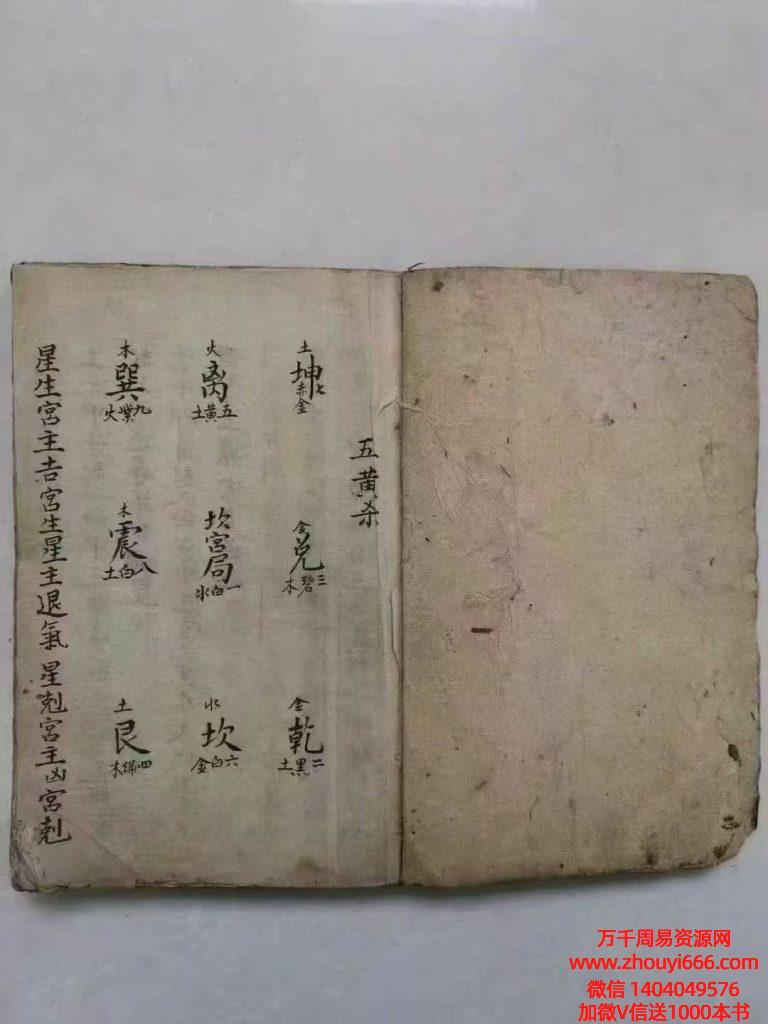 五黄杀
土
坤
七赤金
金
兑
三碧木
金
乾
二黑土
火
离
五黄土
坎宫局
一白水
水
坎
六白金
木
巽
九紫火
木
震
八白土
土
艮
四绿木
星生宮主吉宮生星主退氣 星剋宮主凶宮剋
万千周易资源网
www.zhouyi666.com
微信 1404049576
加微V信送1000本书